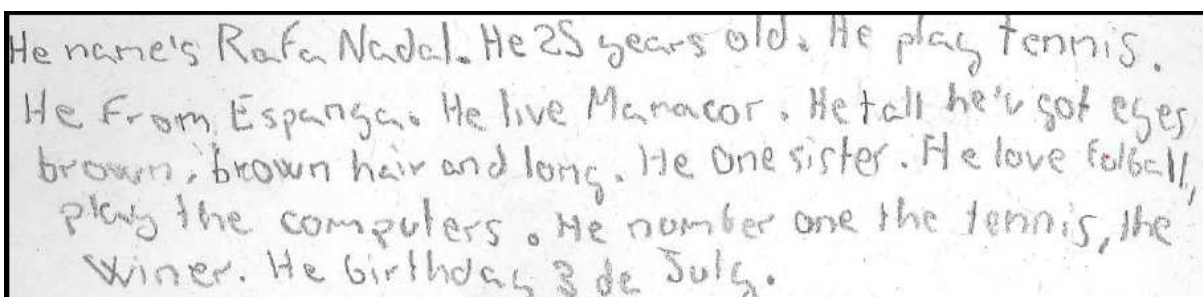 He name's Rafa Nadal. He 25 years old. He play tennis.
He From Espanga. He live Manacor. He tall he'v got eyes
brown, brown hair and long. He one sister. He love fotball,
play the computers. He number one the tennis, the
winer. He birthday 3 de July.